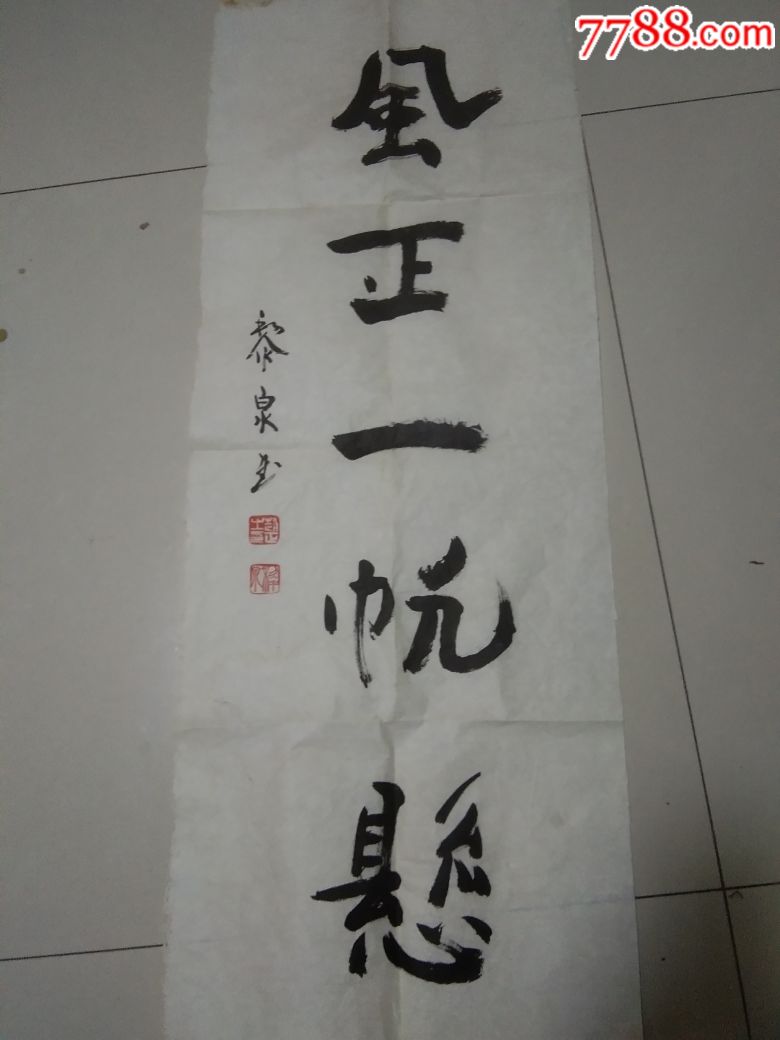 7788.com
風正一帆懸
泉书